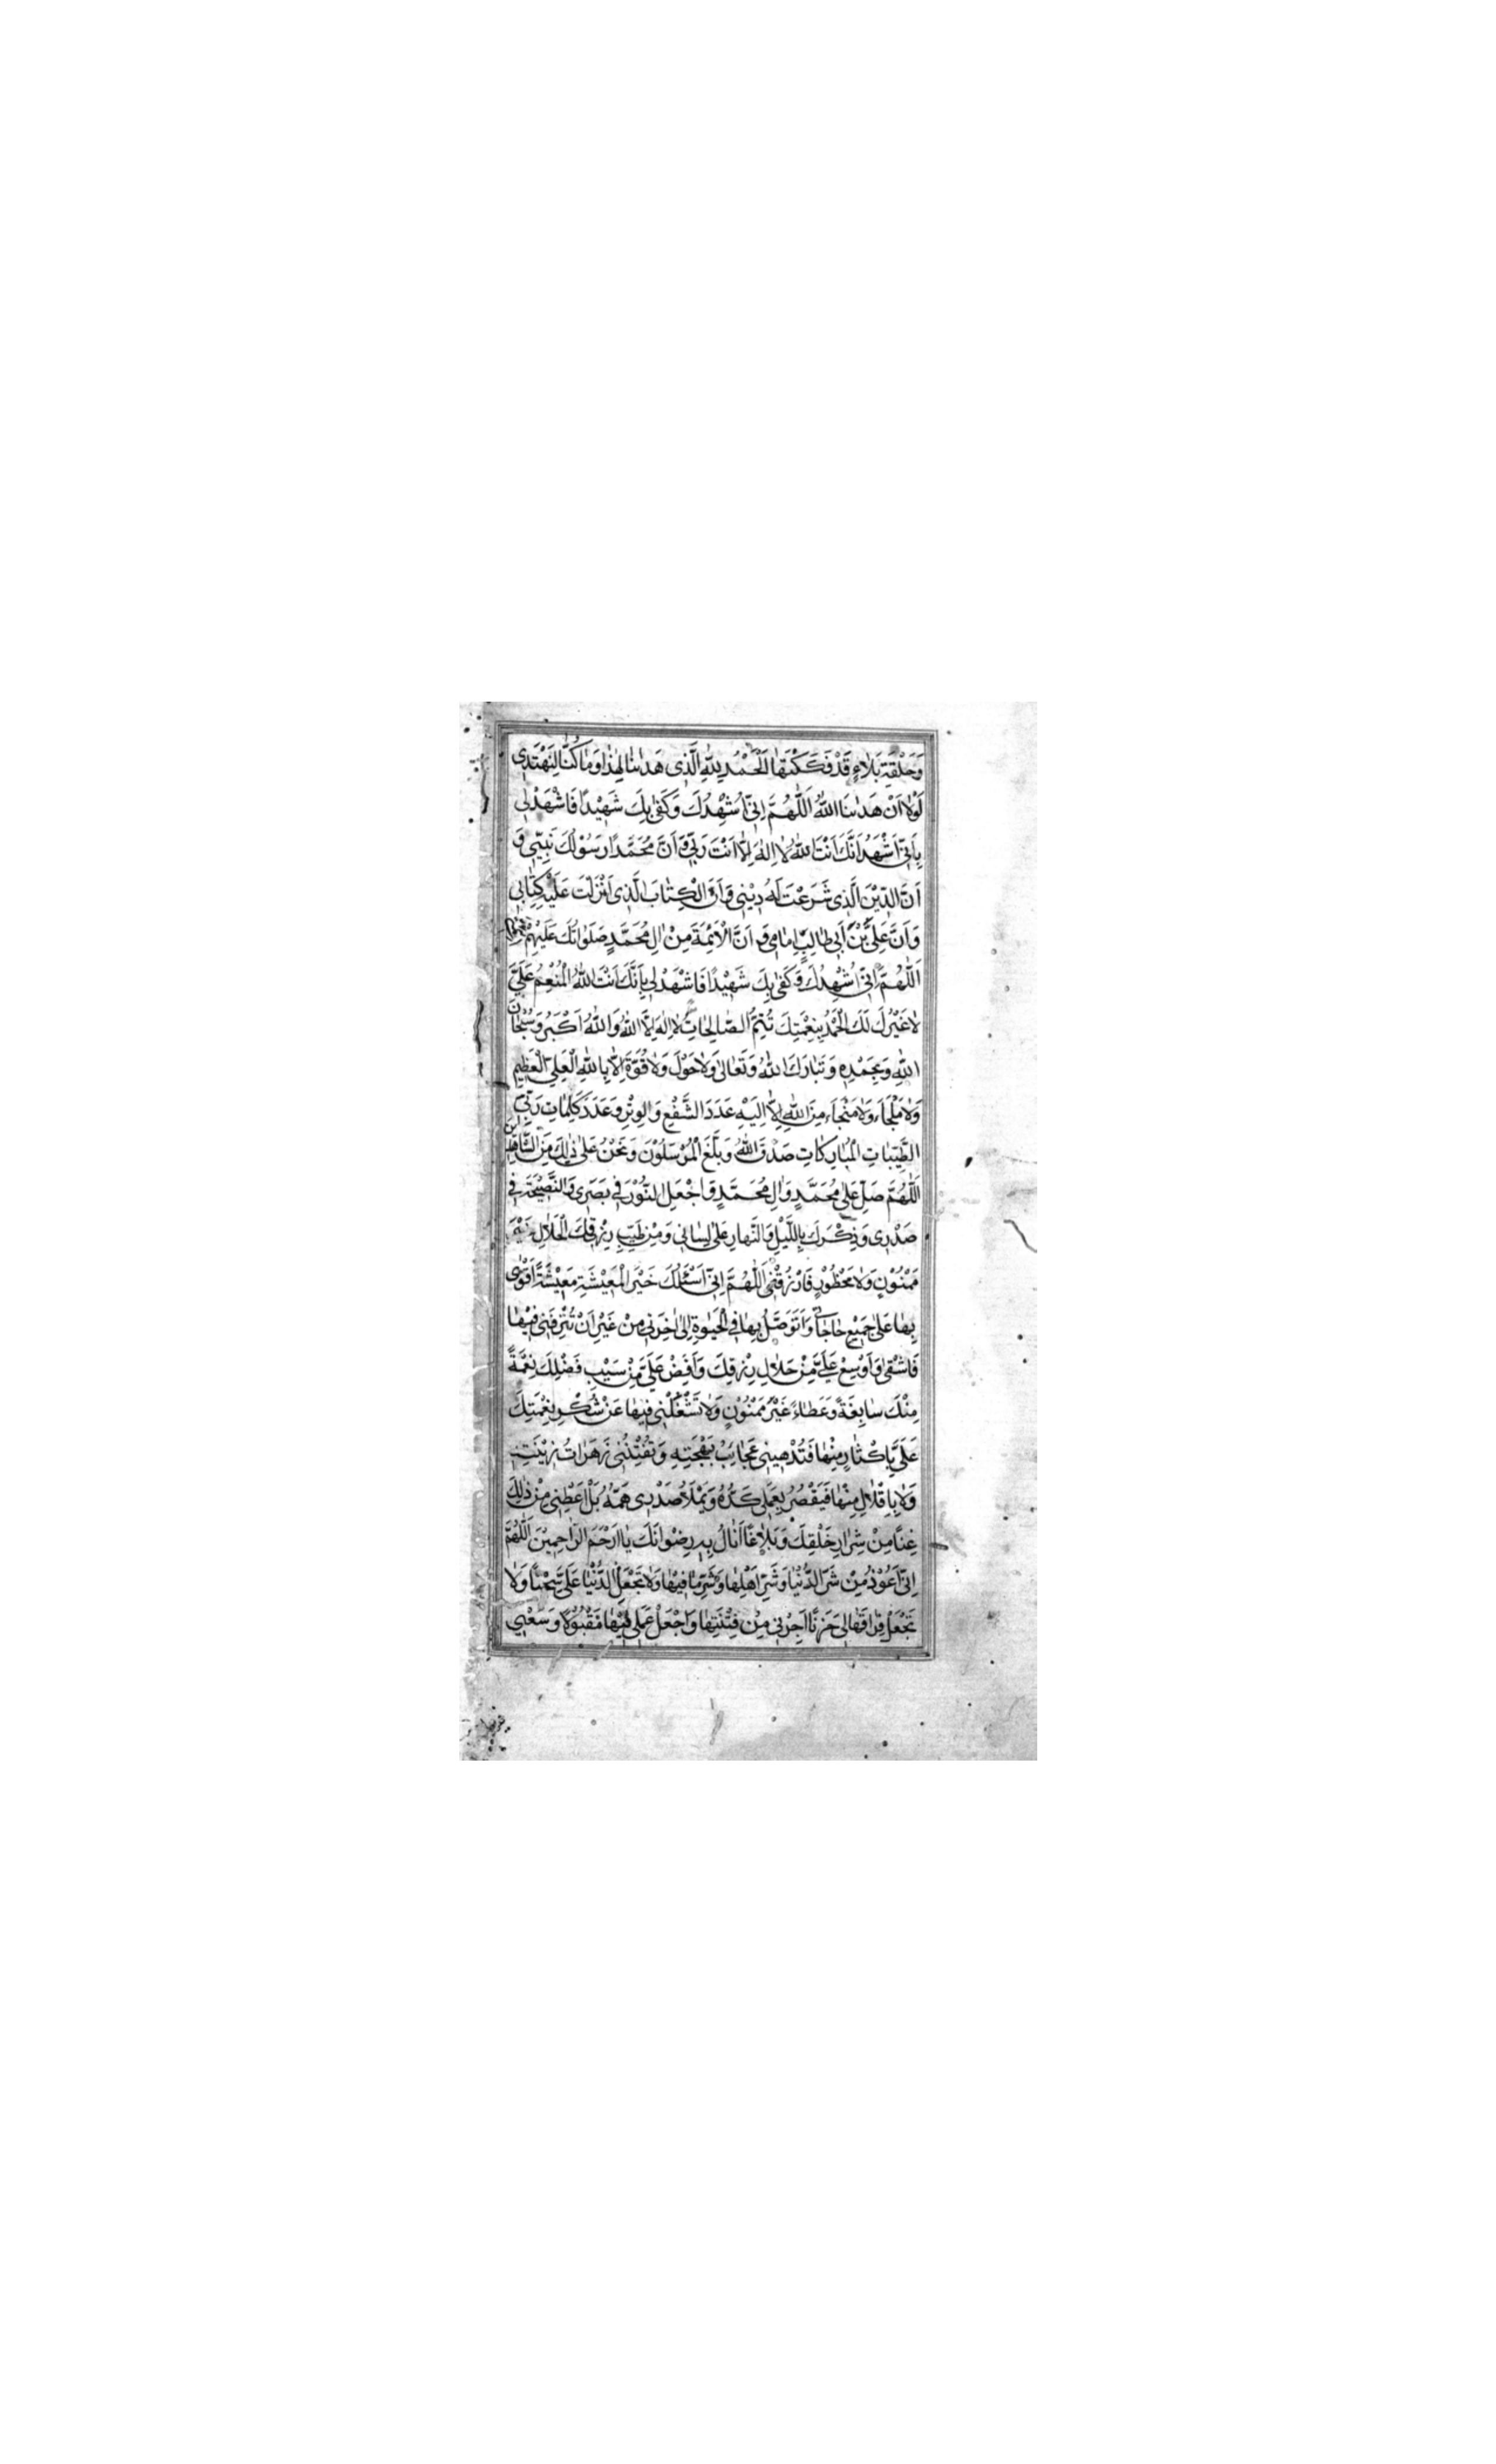 وَحَلْقَةِ بَلٰاءٍ قَدْ فَكَكْتَهَا اَلْحَمْدُ لِلّٰهِ الَّذِی هَدٰینٰا لِهٰذٰا وَمٰا كُنّٰا لِنَهْتَدِی
لَوْلٰا اَنْ هَدٰینَا اللّٰهُ اَللّٰهُمَّ اِنّی اُشْهِدُكَ وَكَفٰی بِكَ شَهِیْدًا فَاشْهَدْ لِی
بِاَنّی اَشْهَدُ اَنَّكَ اَنْتَ اللّٰهُ لٰا اِلٰهَ اِلّٰا اَنْتَ رَبّی وَ اَنَّ مُحَمَّدًا رَسُوْلُكَ نَبِیّی وَ
اَنَّ الدّیْنَ الَّذِی شَرَعْتَ لَهُ دِیْنِی وَ اَنَّ الْكِتٰابَ الَّذِی اَنْزَلْتَ عَلَیْهِ كِتٰابِی
وَ اَنَّ عَلِیَّ بْنَ اَبِی طٰالِبٍ اِمٰامِی وَ اَنَّ الْاَئِمَّةَ مِنْ اٰلِ مُحَمَّدٍ صَلَوٰاتُكَ عَلَیْهِمْ
اَللّٰهُمَّ اِنّی اُشْهِدُكَ وَكَفٰی بِكَ شَهِیْدًا فَاشْهَدْ لِی بِاَنَّكَ اَنْتَ اللّٰهُ الْمُنْعِمُ عَلَیَّ
لٰا غَیْرُكَ لَكَ الْحَمْدُ بِنِعْمَتِكَ تُتِمُّ الصّٰالِحٰاتِ لٰا اِلٰهَ اِلَّا اللّٰهُ وَ اللّٰهُ اَكْبَرُ وَ سُبْحٰانَ
اللّٰهِ وَ بِحَمْدِهِ وَ تَبٰارَكَ اللّٰهُ وَ تَعٰالٰی وَلٰا حَوْلَ وَلٰا قُوَّةَ اِلّٰا بِاللّٰهِ الْعَلِیّ الْعَظِیْمِ
وَلٰا مَلْجَاَءَ وَلٰا مَنْجَاَءَ مِنَ اللّٰهِ اِلّٰا اِلَیْهِ عَدَدَ الشَّفْعِ وَ الْوِتْرِ وَ عَدَدَ كَلِمٰاتِ رَبّی
الطَّیّبٰاتِ الْمُبٰارَكٰاتِ صَدَقَ اللّٰهُ وَ بَلَّغَ الْمُرْسَلُوْنَ وَ نَحْنُ عَلٰی ذٰلِكَ مِنَ الشّٰاهِدِیْنَ
اَللّٰهُمَّ صَلّ عَلٰی مُحَمَّدٍ وَ اٰلِ مُحَمَّدٍ وَ اجْعَلِ النُّوْرَ فِی بَصَرِی وَ النَّصِیْحَةَ فِی
صَدْرِی وَ ذِكْرَكَ بِاللَّیْلِ وَ النَّهٰارِ عَلٰی لِسٰانِی وَ مِنْ طَیّبِ رِزْقِكَ الْحَلٰالِ غَیْرَ
مَمْنُوْنٍ وَلٰا مَحْظُوْرٍ فَارْزُقْنِی اَللّٰهُمَّ اِنّی اَسْئَلُكَ خَیْرَ الْمَعِیْشَةِ مَعِیْشَةً اَقْوٰی
بِهٰا عَلٰی جَمِیْعِ حٰاجٰاتِی وَ اَتَوَصَّلُ بِهٰا فِی الْحَیٰوةِ اِلٰی اٰخِرَتِی مِنْ غَیْرِ اَنْ تُتْرِفَنِی فِیْهٰا
فَاَشْقٰی وَ اَوْسِعْ عَلَیَّ مِنْ حَلٰالِ رِزْقِكَ وَ اَفِضْ عَلَیَّ مِنْ سَیْبِ فَضْلِكَ نِعْمَةً
مِنْكَ سٰابِغَةً وَ عَطٰاءً غَیْرَ مَمْنُوْنٍ وَلٰا تَشْغَلْنِی فِیهٰا عَنْ شُكْرِ نِعْمَتِكَ
عَلَیَّ بِاِكْثٰارٍ مِنْهٰا فَتُلْهِیَنِی عَجٰائِبُ بَهْجَتِهِ وَ تَفْتِنَنِی زَهَرٰاتُ زِیْنَتِهِ
وَلٰا بِاِقْلٰالٍ مِنْهٰا فَیَقْصُرَ بِعَمَلِی كَدُّهُ وَ یَمْلَاُ صَدْرِی هَمُّهُ بَلْ اَعْطِنِی مِنْ ذٰلِكَ
غِنًا مِنْ شِرٰارِ خَلْقِكَ وَ بَلٰاغًا اَنٰالُ بِهِ رِضْوٰانَكَ یٰا اَرْحَمَ الرّٰاحِمِیْنَ اَللّٰهُمَّ
اِنّی اَعُوْذُ مِنْ شَرّ الدُّنْیٰا وَ شَرّ اَهْلِهٰا وَ شَرّ مٰا فِیهٰا وَلٰا تَجْعَلِ الدُّنْیٰا عَلَیَّ سِجْنًا وَلٰا
تَجْعَلْ فِرٰاقَهٰا لِی حَزَنًا اَجِرْنِی مِنْ فِتْنَتِهٰا وَ اجْعَلْ عَمَلِی فِیْهٰا مَقْبُوْلًا وَ سَعْیِی